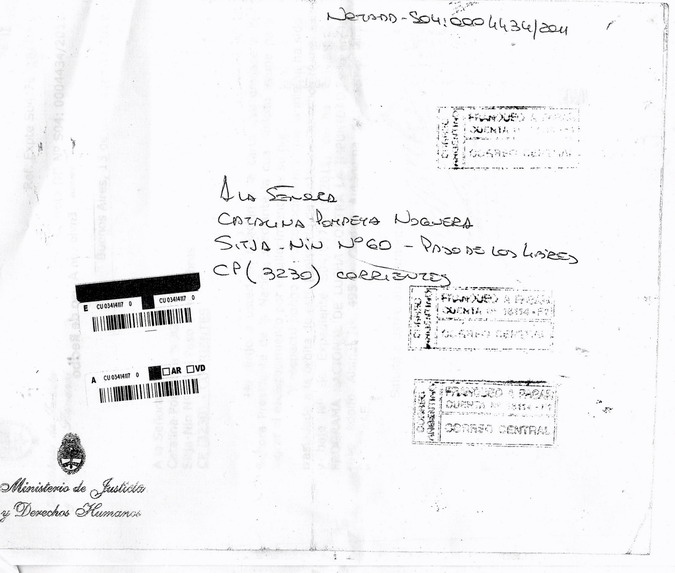 NOTA DD-S04:0004434/2011
CORREO ARGENTINO
FRANQUEO A PAGAR
CUENTA Nº
CORREO CENTRAL
A LA SEÑORA
CATALINA POMPEYA NOGUERA
SITJA-NIN Nº60 - PASO DE LOS LIBRES
CP (3230) CORRIENTES
E CU 0341417 0 CU 0341417 0
CORREO ARGENTINO
FRANQUEO A PAGAR
CUENTA Nº 18114-F1
CORREO CENTRAL
A CU 0341417 0 AR VD
CORREO ARGENTINO
FRANQUEO A PAGAR
CUENTA Nº 18114-F1
CORREO CENTRAL
Ministerio de Justicia
y Derechos Humanos